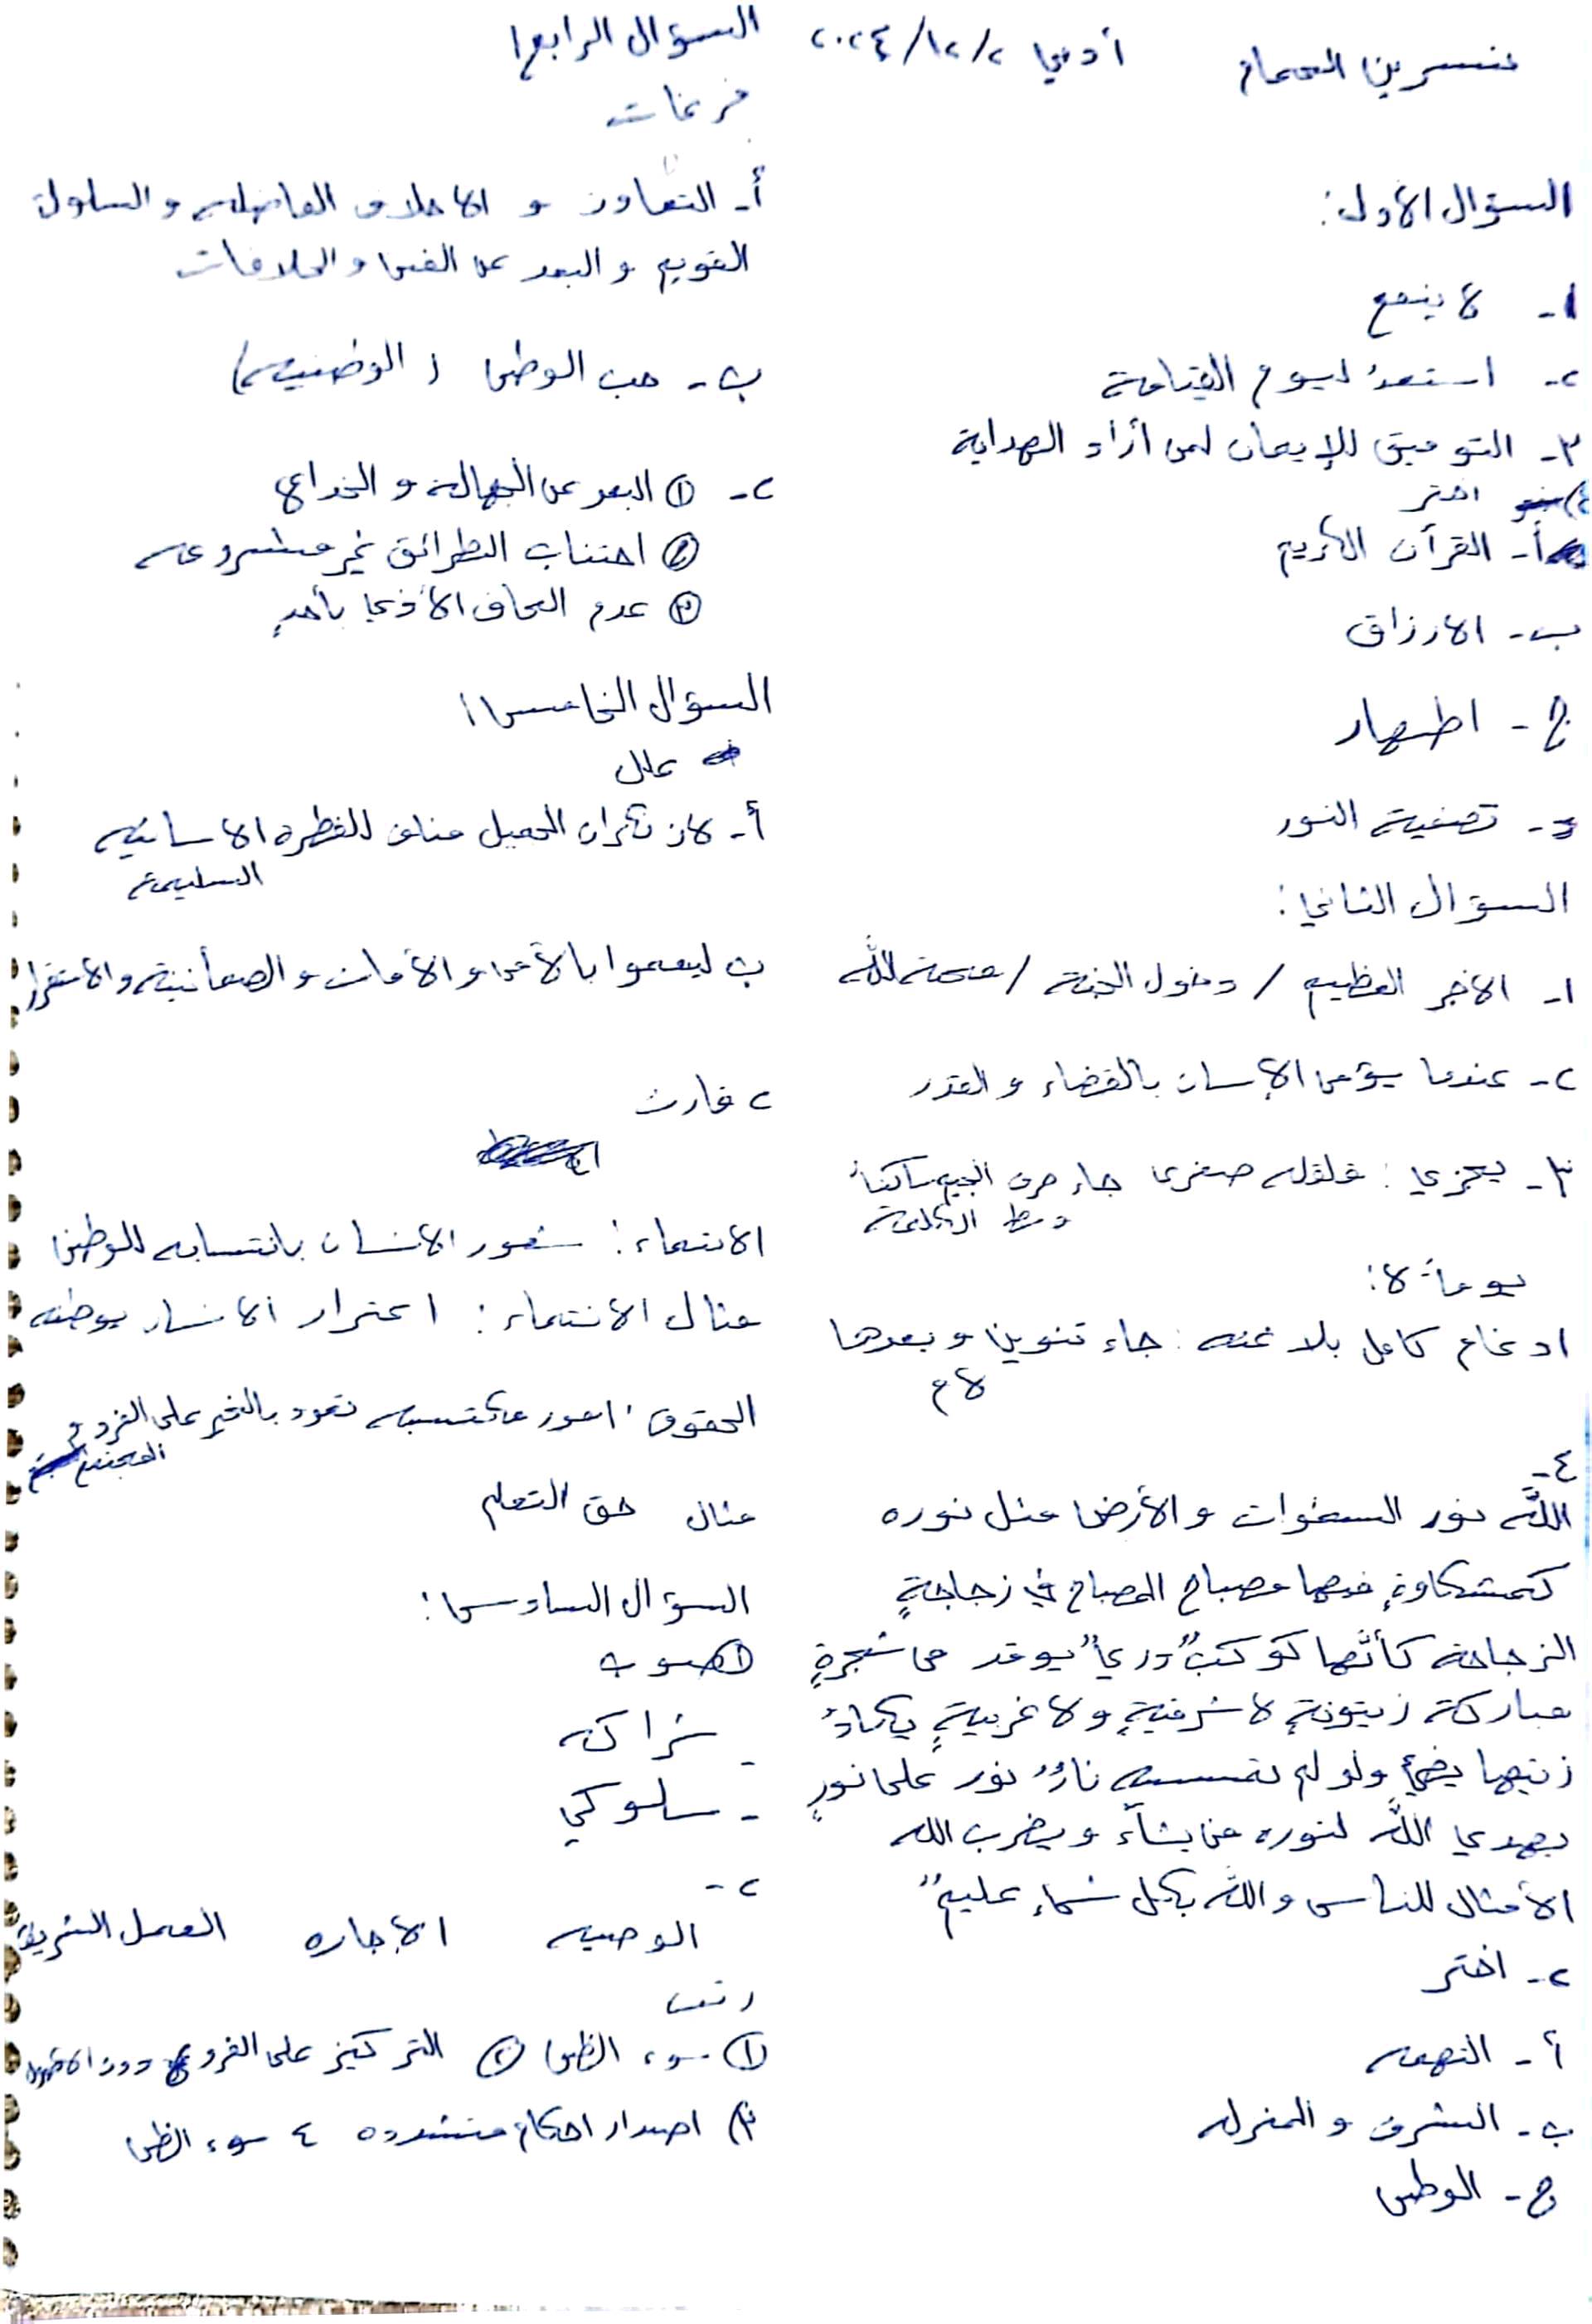 نسرين العمار أدبي ٢٠٢٤/١٢/٢
السؤال الأول:
١- لا ينفع
٢- استعدّ ليوم القيامة
٣- التوفيق للإيمان لمن أراد الهداية
اختر
أ- القرآن الكريم
ب- الارزاق
ج- اظهار
د- تصفية النور
السؤال الثاني:
١- الاجر العظيم / دخول الجنة / محبة لله
٢- عندما يؤمن الإنسان بالقضاء و القدر
٣- يجزي: قلقله صغرى جاء حرف الجيم ساكناً
وسط الكلمة
يوماً لا:
ادغام كامل بلا غنه: جاء تنوين و بعدها
لام
٤-
اللّه نور السموات و الأرض مثل نوره
كمشكاوةٍ فيها مصباح المصباح في زجاجةٍ
الزجاجة كأنّها كوكبٌ دريٌ يوقد من شجرةٍ
مباركة زيتونةٍ لا شرقيةٍ ولا غربيةٍ يكادُ
زيتها يضيءُ ولو لم تمسسه نارٌ نور على نورٍ
يهدي اللّه لنوره من يشآء و يضرب الله
الأمثال للناس و اللّه بكل شيء عليم"
٢- اختر
أ- التهمه
ب- الشرف و المنزله
ج- الوطن
السؤال الرابع:
فرغات
أ- التعاون و الاخلاق الفاضله و السلوك
القويم و البعد عن الفتن و الخلافات
ب- حب الوطن (الوطنيه)
٢- ① البعد عن الجهالة و الخداع
② اجتناب الطرائق غير مشروعه
③ عدم الحاق الأذى بأحدٍ
السؤال الخامس:
علل
أ- لان نكران الجميل مناف للفطرة الانسانيه
السليمة
ب ليعموا بالأمن و الأمان و الطمأنينة و الاستقرار
٢ قارن
الانتماء: شعور الانسان بانتسابه للوطن
مثال الانتماء: اعتزاز الانسان بوطنه
الحقوق: امور مكتسبه تعود بالخير على الفرد و
المجتمع
مثال حق التعلم
السؤال السادس:
① صوب
- شراكه
- سلوكي
٢-
الوصيه الإجاره العمل الشريف
رتب
① سوء الظن ② التركيز على الفروع دون الأصول
③ اصدار احكام متشدده ٤ سوء الظن